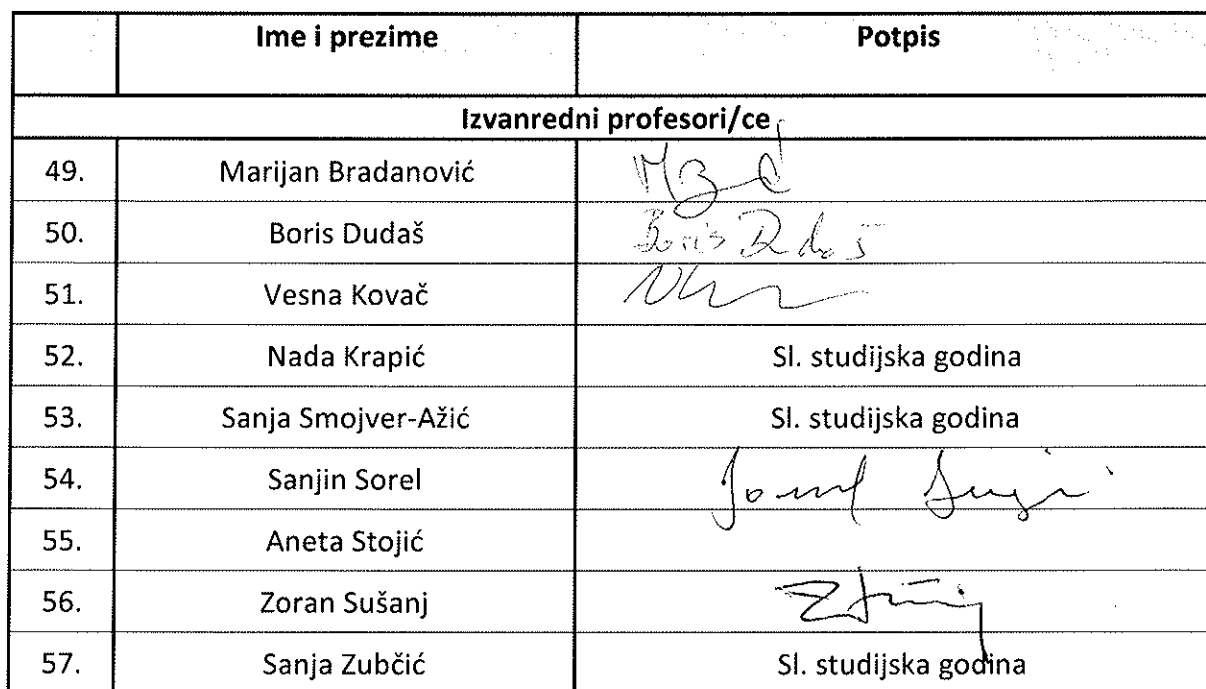 Ime i prezime Potpis
Izvanredni profesori/ce
49. Marijan Bradanović
50. Boris Dudaš Boris Dudaš
51. Vesna Kovač
52. Nada Krapić Sl. studijska godina
53. Sanja Smojver-Ažić Sl. studijska godina
54. Sanjin Sorel
55. Aneta Stojić
56. Zoran Sušanj
57. Sanja Zubčić Sl. studijska godina